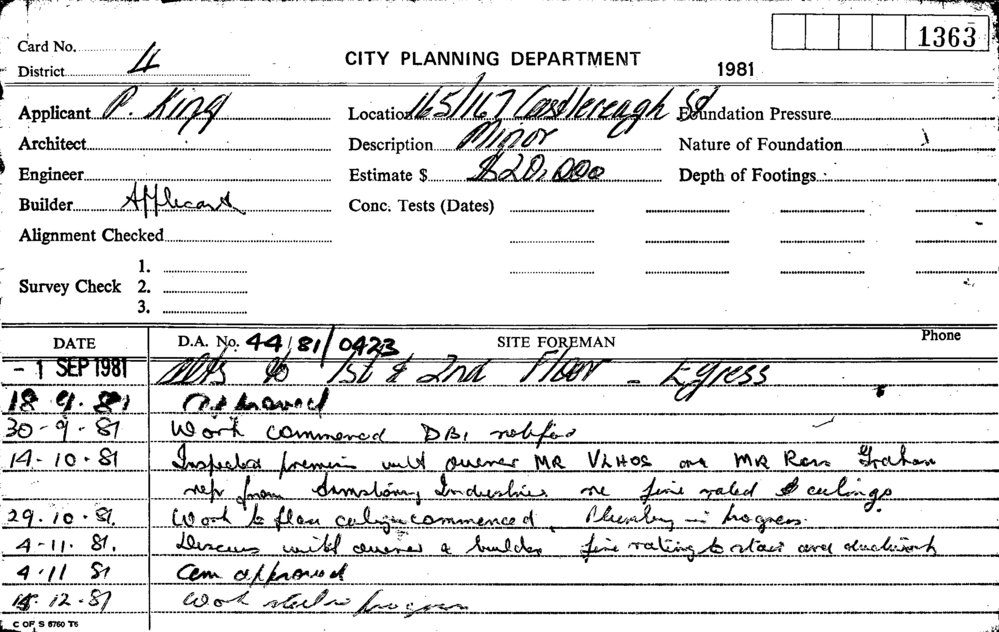 1363
Card No.
District 4
CITY PLANNING DEPARTMENT
1981
Applicant P. King
Location 165/167 Castlereagh St
Foundation Pressure
Architect
Description Minor
Nature of Foundation
Engineer
Estimate $ $20,000
Depth of Footings
Builder Applicant
Conc. Tests (Dates)
Alignment Checked
Survey Check 1.
2.
3.
DATE
D.A. No. 44/81/0423
SITE FOREMAN
Phone
- 1 SEP 1981 Alts to 1st & 2nd Floor - Egress
18 9. 81 Approved
30-9-81 Work commenced DBI
14-10-81 Inspected premises with owner MR VLHOS and MR Ross Graham
rep from Armstrong Industries re fire rated ceilings
29.10.81. Work to floor commenced. Plumbing in progress.
4-11.81. Discuss with owner & builder fire rating to stair and ductwork
4.11 81 approved
12.81 Work still in progress
C OF S 6760 T6